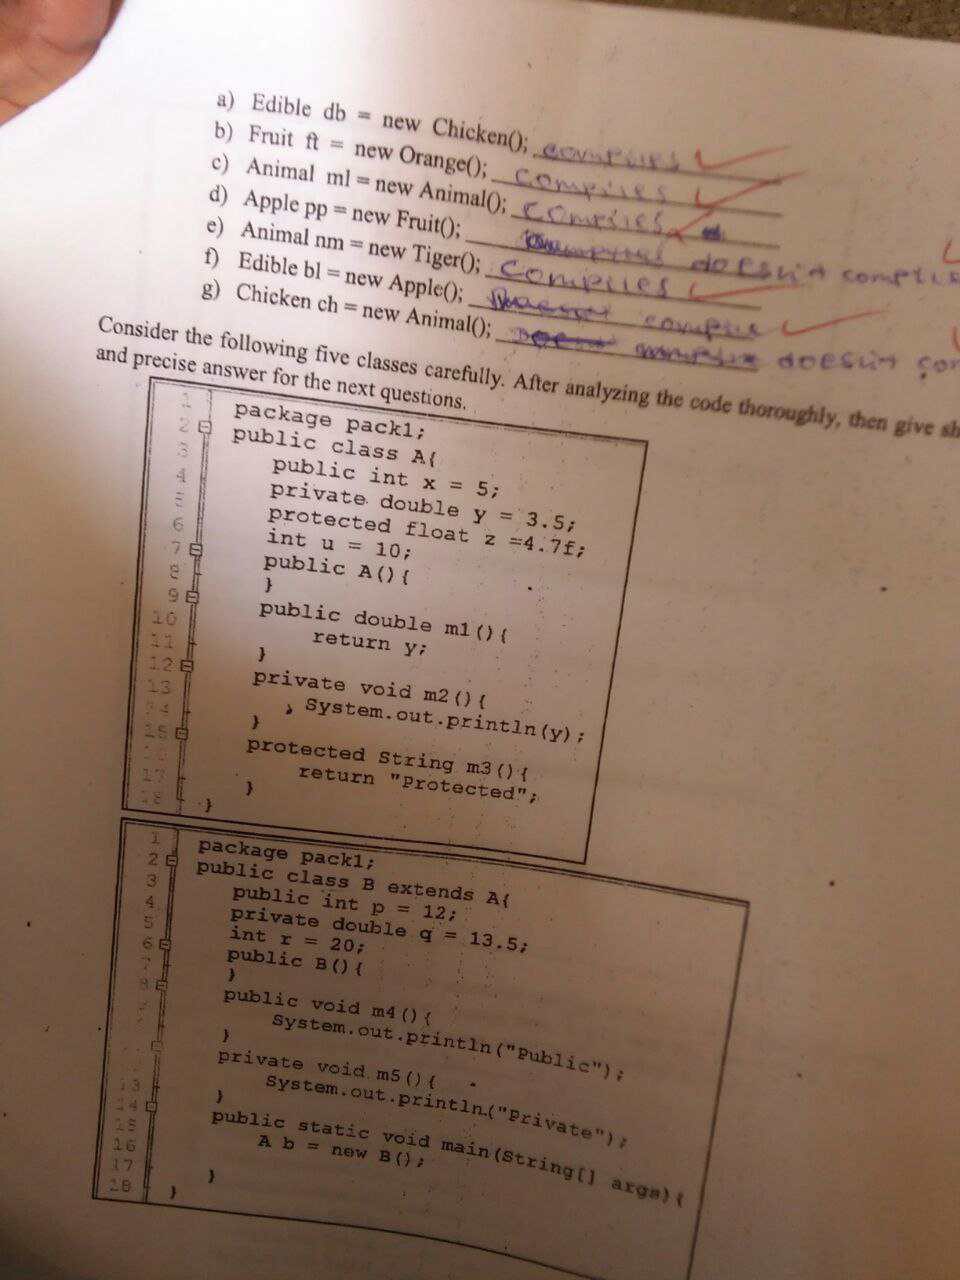 a) Edible db = new Chicken(); compiles
b) Fruit ft = new Orange(); compiles
c) Animal ml = new Animal(); compiles
d) Apple pp = new Fruit(); doesn't
e) Animal nm = new Tiger(); compiles
f) Edible bl = new Apple(); compile
g) Chicken ch = new Animal(); doesn't
Consider the following five classes carefully. After analyzing the code thoroughly, then give
and precise answer for the next questions.
1 package pack1;
2 public class A{
3 public int x = 5;
4 private double y = 3.5;
5 protected float z =4.7f;
6 int u = 10;
7 public A(){
8 }
9 public double m1(){
10 return y;
11 }
12 private void m2(){
13 System.out.println(y);
14 }
15 protected String m3(){
return "Protected";
17 }
18 }
1 package pack1;
2 public class B extends A{
3 public int p = 12;
4 private double q = 13.5;
5 int r = 20;
6 public B(){
7 }
8 public void m4(){
System.out.println("Public");
}
private void m5(){
System.out.println("Private");
13 }
14 public static void main(String[] args){
15 A b = new B();
16
17 }
18 }